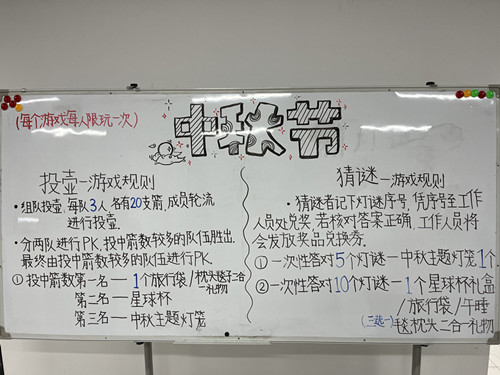 (每个游戏每人限玩一次)
中秋节
投壶—游戏规则
·组队投壶,每队3人,各有20支箭,成员轮流
进行投壶.
·分两队进行PK,投中箭数较多的队伍胜出.
最终由投中箭数较多的队伍进行PK
①投中箭数第一名—1个旅行袋/枕头毯子二合
一礼物
第二名—星球杯
第三名—中秋主题灯笼
猜谜—游戏规则
·猜谜者记下灯谜序号,凭序号至工作
人员处兑奖,若核对答案正确,工作人员将
会发放奖品兑换券.
①一次性答对5个灯谜—中秋主题灯笼1个.
②一次性答对10个灯谜—1个星球杯礼盒
/旅行袋/午睡
(三选一)毯枕头二合一礼物